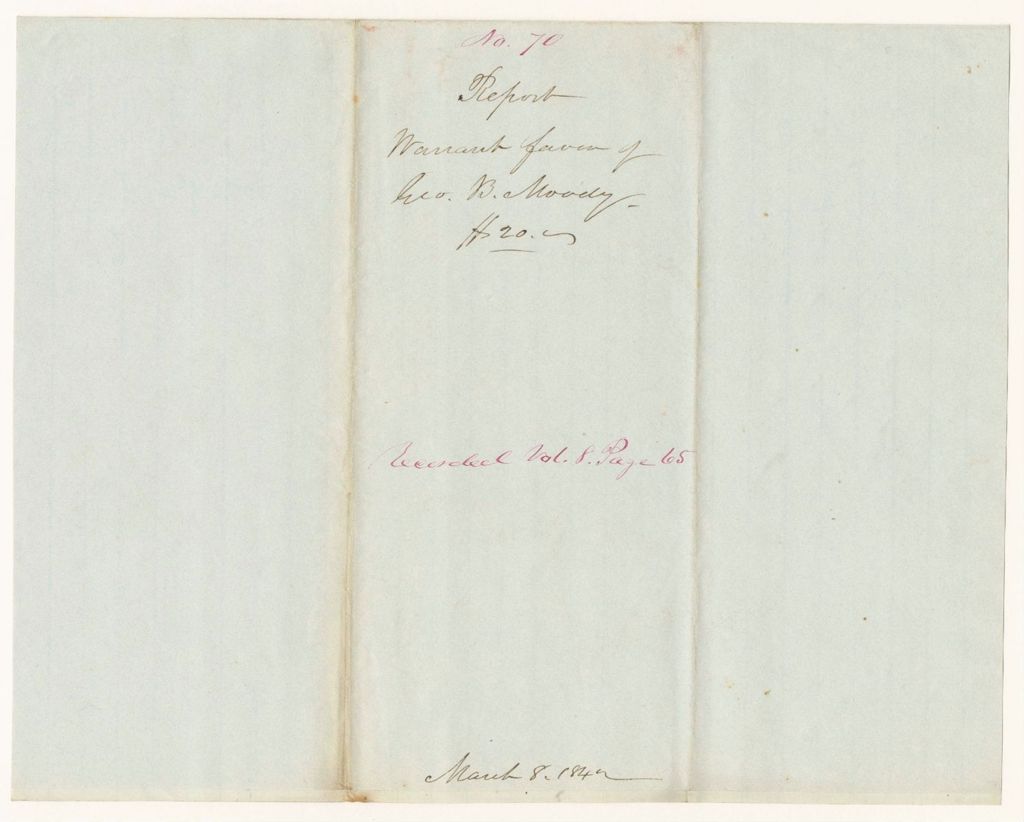 No. 70
Report
Warrant favor of
Geo. B. Moody
$20.
Recorded Vol. 8. Page 65
March 8. 1842